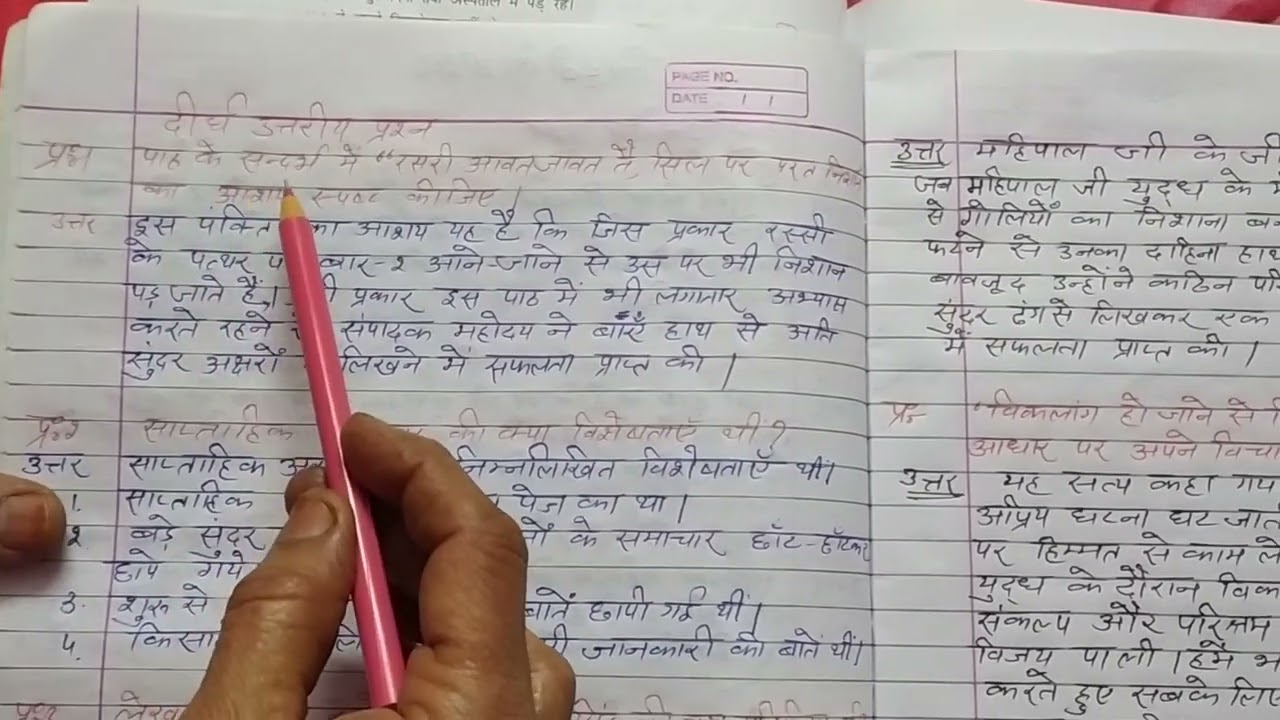 PAGE NO.
DATE
दीर्घ उत्तरीय प्रश्न
प्रश्न पाठ के सन्दर्भ में "रसरी आवत जावत है, सिल पर परत निशान
का आशय स्पष्ट कीजिए।
उत्तर इस पंक्ति का आशय यह है कि जिस प्रकार रस्सी
के पत्थर प बार-२ आने-जाने से उस पर भी निशान
पड़ जाते हैं। प्रकार इस पाठ में भी लगातार अभ्यास
करते रहने संपादक महोदय ने बाएँ हाथ से अति
सुंदर अक्षरों लिखने में सफलता प्राप्त की।
प्र०२ साप्ताहिक की क्या विशेषताएँ थीं?
उत्तर साप्ताहिक निम्नलिखित विशेषताएँ थीं।
1. साप्ताहिक पेज का था।
२ बड़े सुंदर के समाचार छाँट-छाँटकर
छापे गये
३. शुरू से बातें छापी गई थीं।
4. जानकारी की बातें थीं।
प्रश्न
उत्तर महिपाल जी के जी
जब महिपाल जी युद्ध के
से गोलियों का निशाना
फटने से उनका दाहिना हाथ
बावजूद उन्होंने कठिन
सुंदर ढंग से लिखकर एक
में सफलता प्राप्त की।
प्र० "विकलांग हो जाने से
आधार पर अपने
उत्तर यह सत्य कहा
अप्रिय घटना घट
पर हिम्मत से काम
युद्ध के दौरान
संकल्प और परिश्रम
विजय पाली। हमें
करते हुए सबके लिए